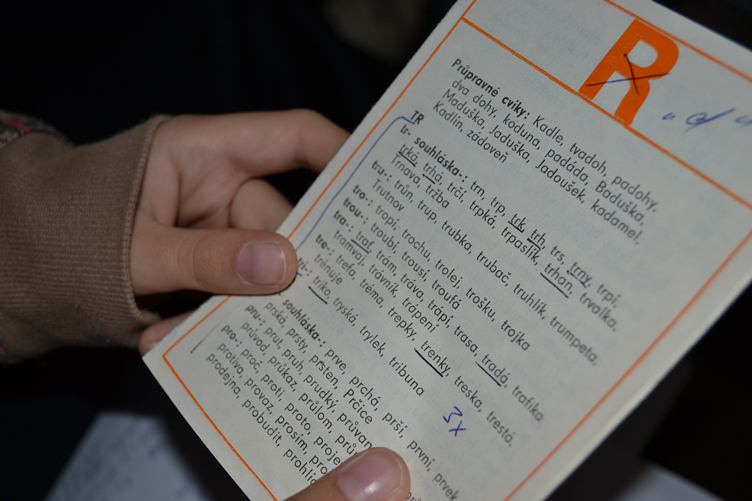 R „d"
Průpravné cviky: Kadle, tvadoh, padohy.
dva dohy, koduna, padáda, Baduška,
Maduška, Jaduška, Jadoušek, kadamel,
Kadlín, zádoveň
TR
tr- souhláska-: trn, trp, trk, trh, trs, trny, trpí,
trká, trhá, trčí, trpká, trpaslík, trhan, trvalka,
Trnava, tržba
tru-: trůn, trup, trubka, trubač, truhlík, trumpeta,
Trutnov
tro-: tropí, trochu, trolej, trošku, trojka
trou-: troubí, trousí, troufá
tra-: trať, trám, tráva, trápí, trasa, tradá, trafika
tramvaj, trávník, trápení
tre-: trefa, tréma, trepky, trenky, treska, trestá,
trénuje
tri-: triko, tryská, trylek, tribuna
3x
souhláska-: prve, prchá, prší, první, prvek
prská, prsty, prsten, Prčice
pru-: prut, pruh, prudký, průvan
průvod, průkaz, průlom,
pro-: proč, proti, proto,
protiva, provaz, prosím,
prodejna,
probudit,